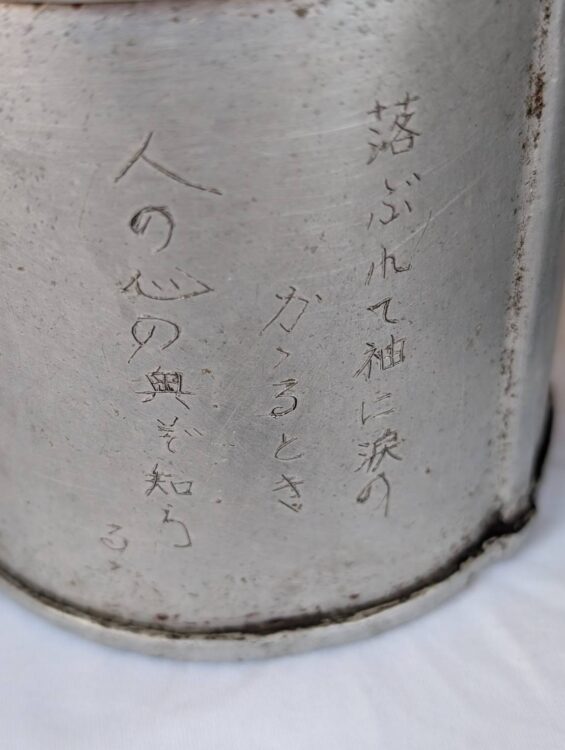 落ぶれて袖に涙の
かゝるとき
人の心の奥ぞ知ら
る